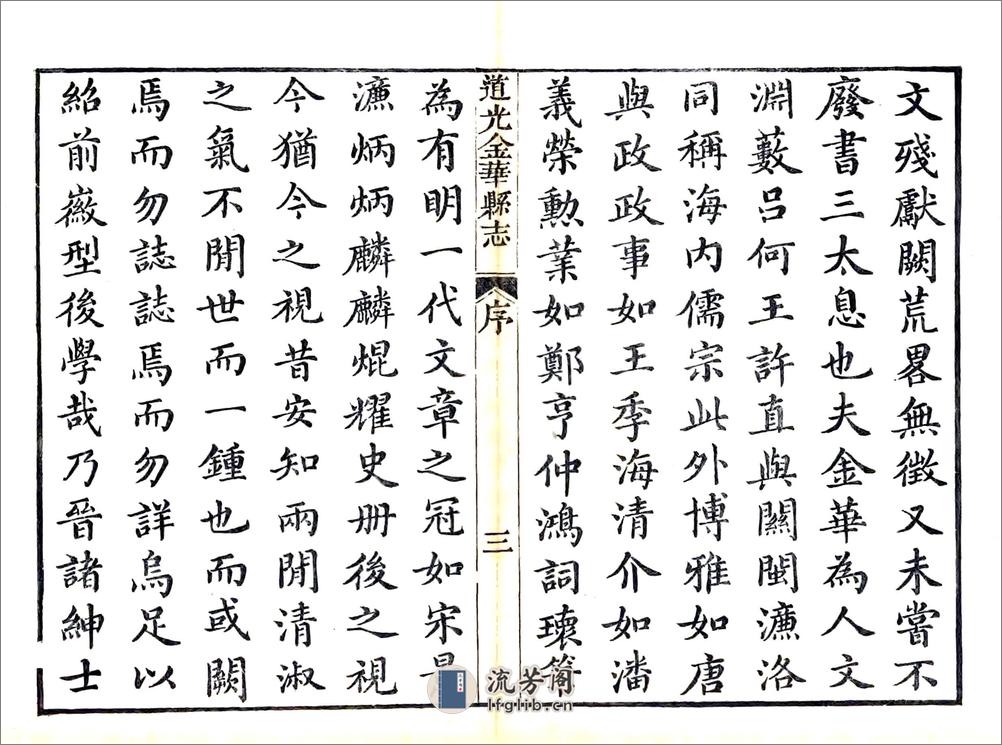 文殘獻闕荒畧無徵又未嘗不
廢書三太息也夫金華為人文
淵藪呂何王許直與關閩濂洛
同稱海内儒宗此外博雅如唐
與政政事如王季海清介如潘
義榮勳業如鄭亨仲鴻詞瓌
道光金華縣志
序
三
為有明一代文章之冠如宋
濂炳炳麟麟焜耀史册後之視
今猶今之視昔安知兩閒清淑
之氣不閒世而一鍾也而或闕
焉而勿誌誌焉而勿詳烏足以
紹前徽型後學哉乃晉諸紳士
流芳阁
lfglib.cn